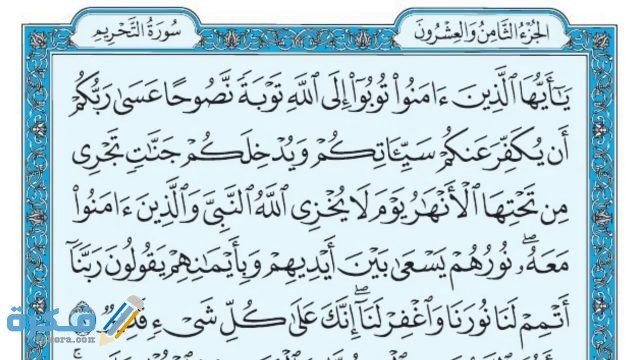 سُورَةُ التَّحْرِيمِ
الجُزْءُ الثَّامِنُ وَالعِشْرُونَ
يَٰٓأَيُّهَا ٱلَّذِينَ ءَامَنُوا۟ تُوبُوٓا۟ إِلَى ٱللَّهِ تَوْبَةً نَّصُوحًا عَسَىٰ رَبُّكُمْ
أَن يُكَفِّرَ عَنكُمْ سَيِّـَٔاتِكُمْ وَيُدْخِلَكُمْ جَنَّٰتٍ تَجْرِى
مِن تَحْتِهَا ٱلْأَنْهَٰرُ يَوْمَ لَا يُخْزِى ٱللَّهُ ٱلنَّبِىَّ وَٱلَّذِينَ ءَامَنُوا۟
مَعَهُۥ ۖ نُورُهُمْ يَسْعَىٰ بَيْنَ أَيْدِيهِمْ وَبِأَيْمَٰنِهِمْ يَقُولُونَ رَبَّنَآ
أَتْمِمْ لَنَا نُورَنَا وَٱغْفِرْ لَنَآ ۖ إِنَّكَ عَلَىٰ كُلِّ شَىْءٍ قَدِيرٌ
فكرة